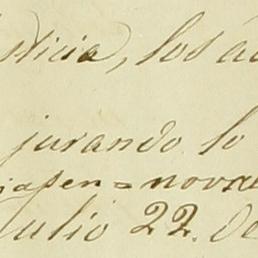 sticia, los ac
jurando lo
iasen = novae
Julio 22. de